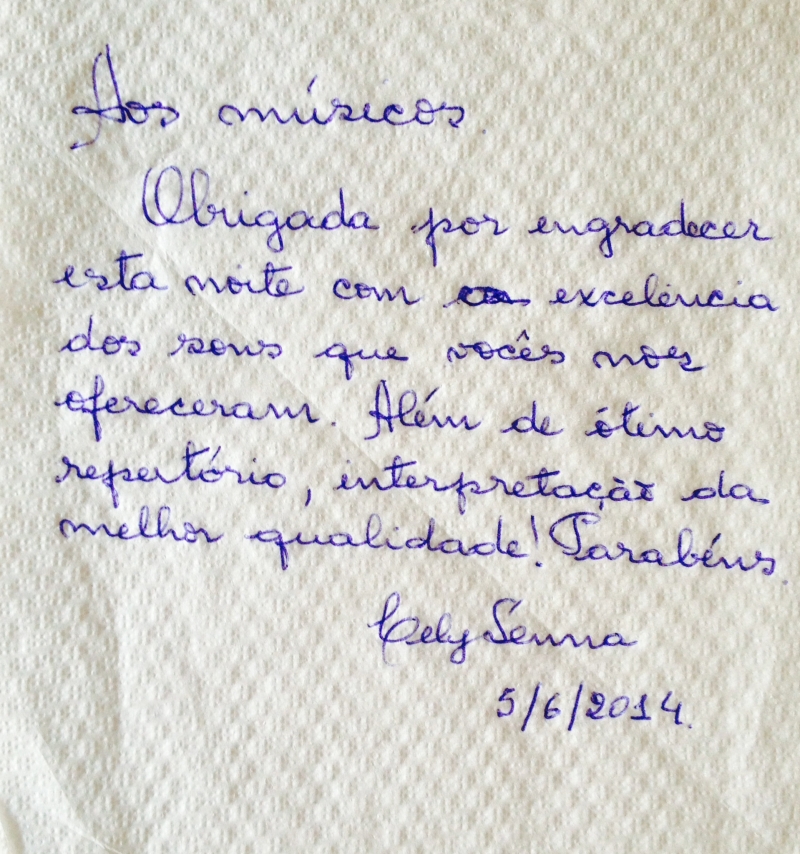 Aos músicos
Obrigada por engradecer
esta noite com excelência
dos sons que vocês nos
ofereceram. Além de ótimo
repertório, interpretação da
melhor qualidade! Parabéns.
Cely Senna
5/6/2014.